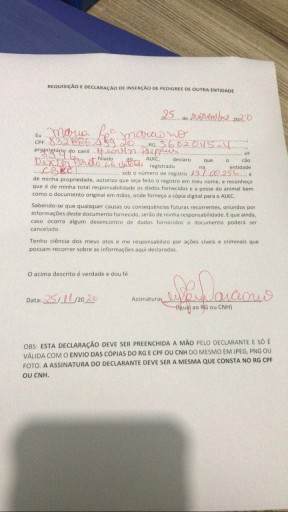 REQUISIÇÃO E DECLARAÇÃO DE INSERÇÃO DE PEDIGREE DE OUTRA ENTIDADE
25 de novembro 2020
Eu Maria marciano
CPF: RG
proprietário do cão nº
filiado AUKC, declaro que o cão
registrado na entidade
CBKC, sob o número de registro
de minha propriedade, autorizo que seja feito o registro em meu nome, e reconheço
que é de minha total responsabilidade os dados fornecidos e a posse do animal bem
como o documento original em mãos, onde forneço a cópia digital para o AUKC.
Sabendo-se que quaisquer causas ou consequências futuras recorrentes, oriundos por
informações deste documento fornecido, serão de minha responsabilidade. E que ainda,
caso ocorra algum desencontro de dados fornecidos o documento poderá ser
cancelado.
Tenho ciência dos meus atos e me responsabilizo por ações cíveis e criminais que
possam recorrer sobre as informações aqui declaradas.
O acima descrito é verdade e dou fé
Data: 25/11/2020 Assinatura: Marciano
(igual ao RG ou CNH)
OBS: ESTA DECLARAÇÃO DEVE SER PREENCHIDA A MÃO PELO DECLARANTE E SÓ É
VÁLIDA COM O ENVIO DAS CÓPIAS DO RG E CPF OU CNH DO MESMO EM JPEG, PNG OU
FOTO. A ASSINATURA DO DECLARANTE DEVE SER A MESMA QUE CONSTA NO RG CPF
OU CNH.